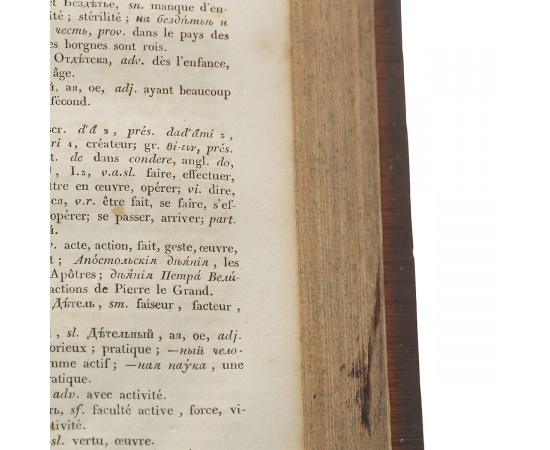 et Бездѣтье, sn. manque d'en-
ité ; stérilité ; на бездѣтьи и
честь, prov. dans le pays des
es borgnes sont rois.
Отдѣтска, adv. dès l'enfance,
âge.
й, ая, ое, adj. ayant beaucoup
fécond.
scr. d'â 2, prés. dad'âmi 2,
ri 4, créateur; gr. prés.
t. de dans condere, angl. do,
, I.2, v.a.sl. faire, effectuer,
ttre en œuvre, opérer; vi. dire,
ca, v.r. être fait, se faire, s'ef-
opérer; se passer, arriver; part.
й.
. acte, action, fait, geste, œuvre,
t ; Апо́стольскія дѣя́нія, les
Apôtres; дѣя́нія Петра́ Вели́-
actions de Pierre le Grand.
Дѣ́тель, sm. faiseur, facteur,
, sl. Дѣ́тельный, ая, ое, adj.
orieux ; pratique ; —ный чело-
mme actif; —ная нау́ка, une
ratique.
adv. avec activité.
ть, sf. faculté active, force, vi-
tivité.
sl. vertu, œuvre.